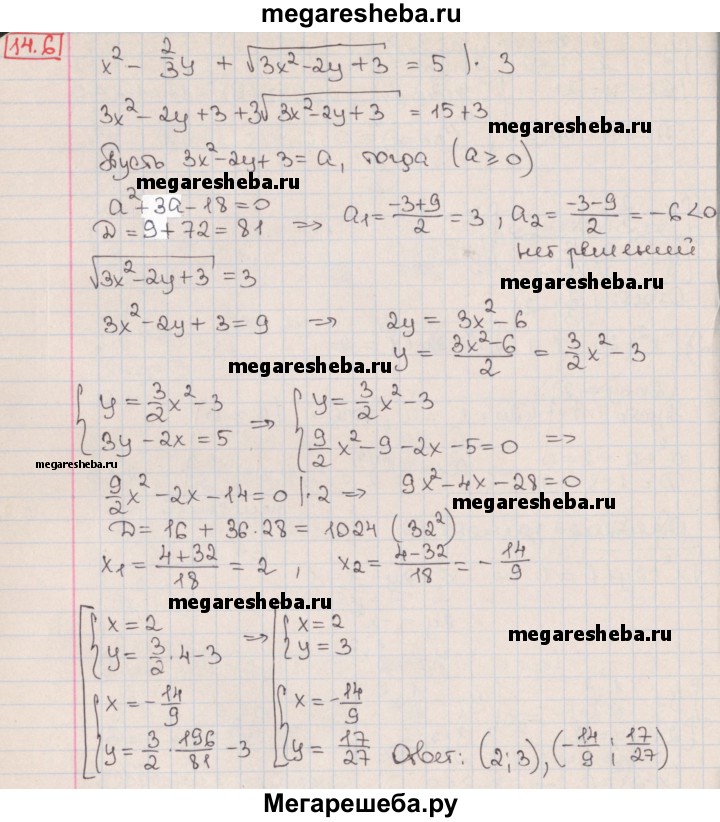 megaresheba.ru
14.6
x² − 2/3y + √(3x²−2y+3) = 5 |· 3
3x²−2y+3+3√(3x²−2y+3) = 15+3
megaresheba.ru
Пусть 3x²−2y+3=a, тогда (a≥0)
megaresheba.ru
a²+3a−18=0
D=9+72=81 => a₁=(−3+9)/2=3, a₂=(−3−9)/2=−6<0
нет решений
megaresheba.ru
√(3x²−2y+3)=3
3x²−2y+3=9 => 2y=3x²−6
megaresheba.ru
y=(3x²−6)/2=3/2x²−3
{y=3/2x²−3 => {y=3/2x²−3
{3y−2x=5 {9/2x²−9−2x−5=0 =>
megaresheba.ru
9/2x²−2x−14=0 |·2 => 9x²−4x−28=0
megaresheba.ru
D=16+36·28=1024 (32²)
x₁=(4+32)/18=2, x₂=(4−32)/18=−14/9
megaresheba.ru
[{x=2 => [{x=2
megaresheba.ru
{y=3/2·4−3 {y=3
{x=−14/9 {x=−14/9
{y=3/2·196/81−3 {y=17/27 Ответ: (2;3),(−14/9;17/27)
Мегарешеба.ру